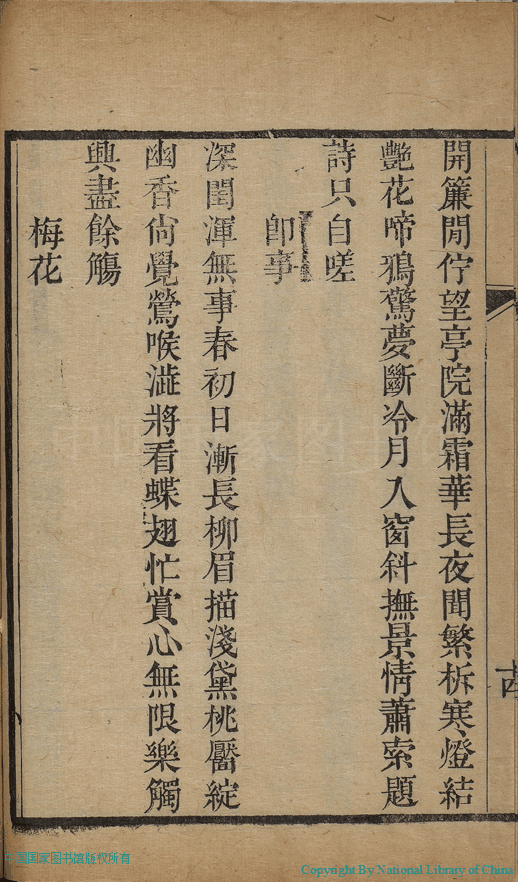 開簾閒佇望亭院滿霜華長夜聞繁柝寒燈結
艷花啼鴉驚夢斷冷月入窗斜撫景情蕭索題
詩只自嗟
即事
深閨渾無事春初日漸長柳眉描淺黛桃靨綻
幽香尙覺鶯喉澁將看蝶翅忙賞心無限樂觸
興盡餘觴
梅花
中国国家图书馆版权所有
Copyright By National Library of China